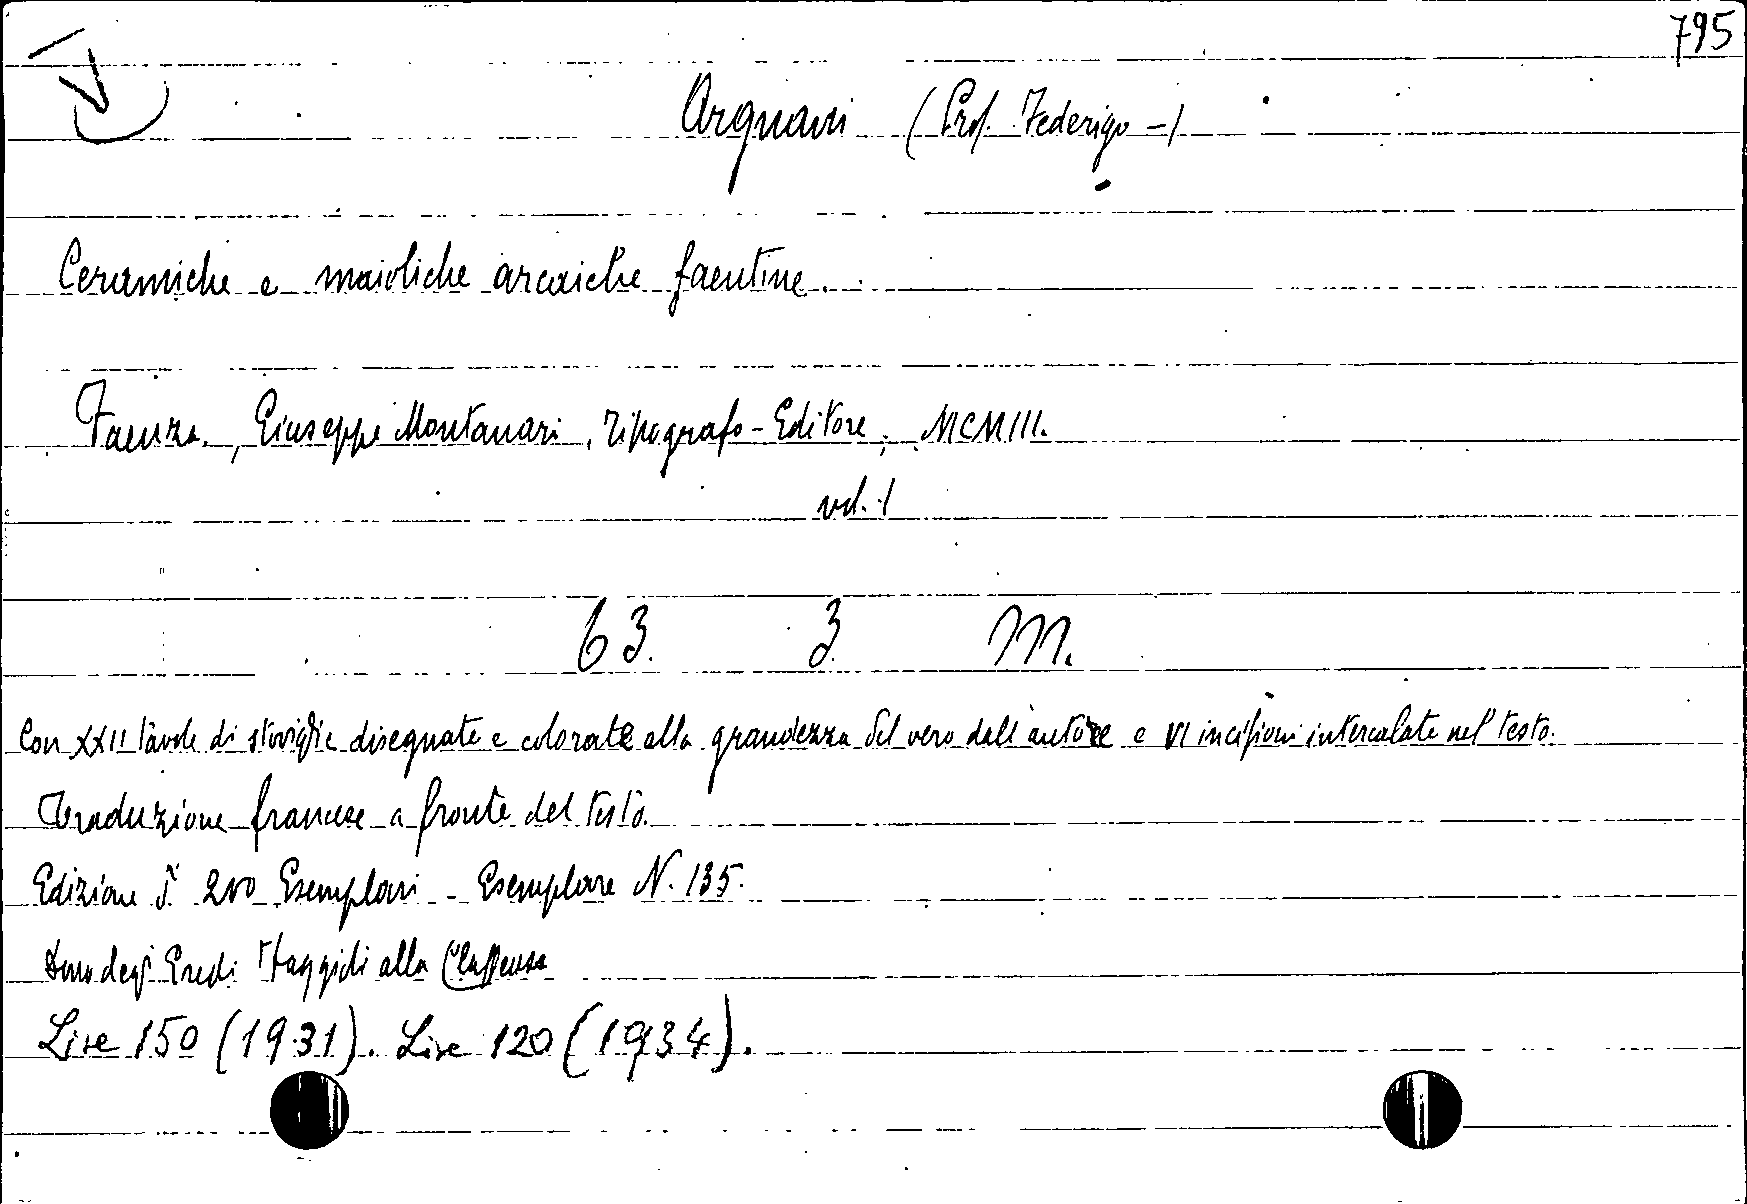 795
Argnani (Prof. Federigo -)
Ceramiche e maioliche arcaiche faentine.
Faenza, Giuseppe Montanari, Tipografo-Editore, MCMIII.
vol. 1
63. 3. M.
Con XXII tavole di stoviglie disegnate e colorate alla grandezza del vero dall'autore e VI incisioni intercalate nel testo.
Traduzione francese a fronte del testo.
Edizione di 200 Esemplari - Esemplare N. 135.
Dono degli Eredi alla Classense
Lire 150 (1931). Lire 120 (1934).